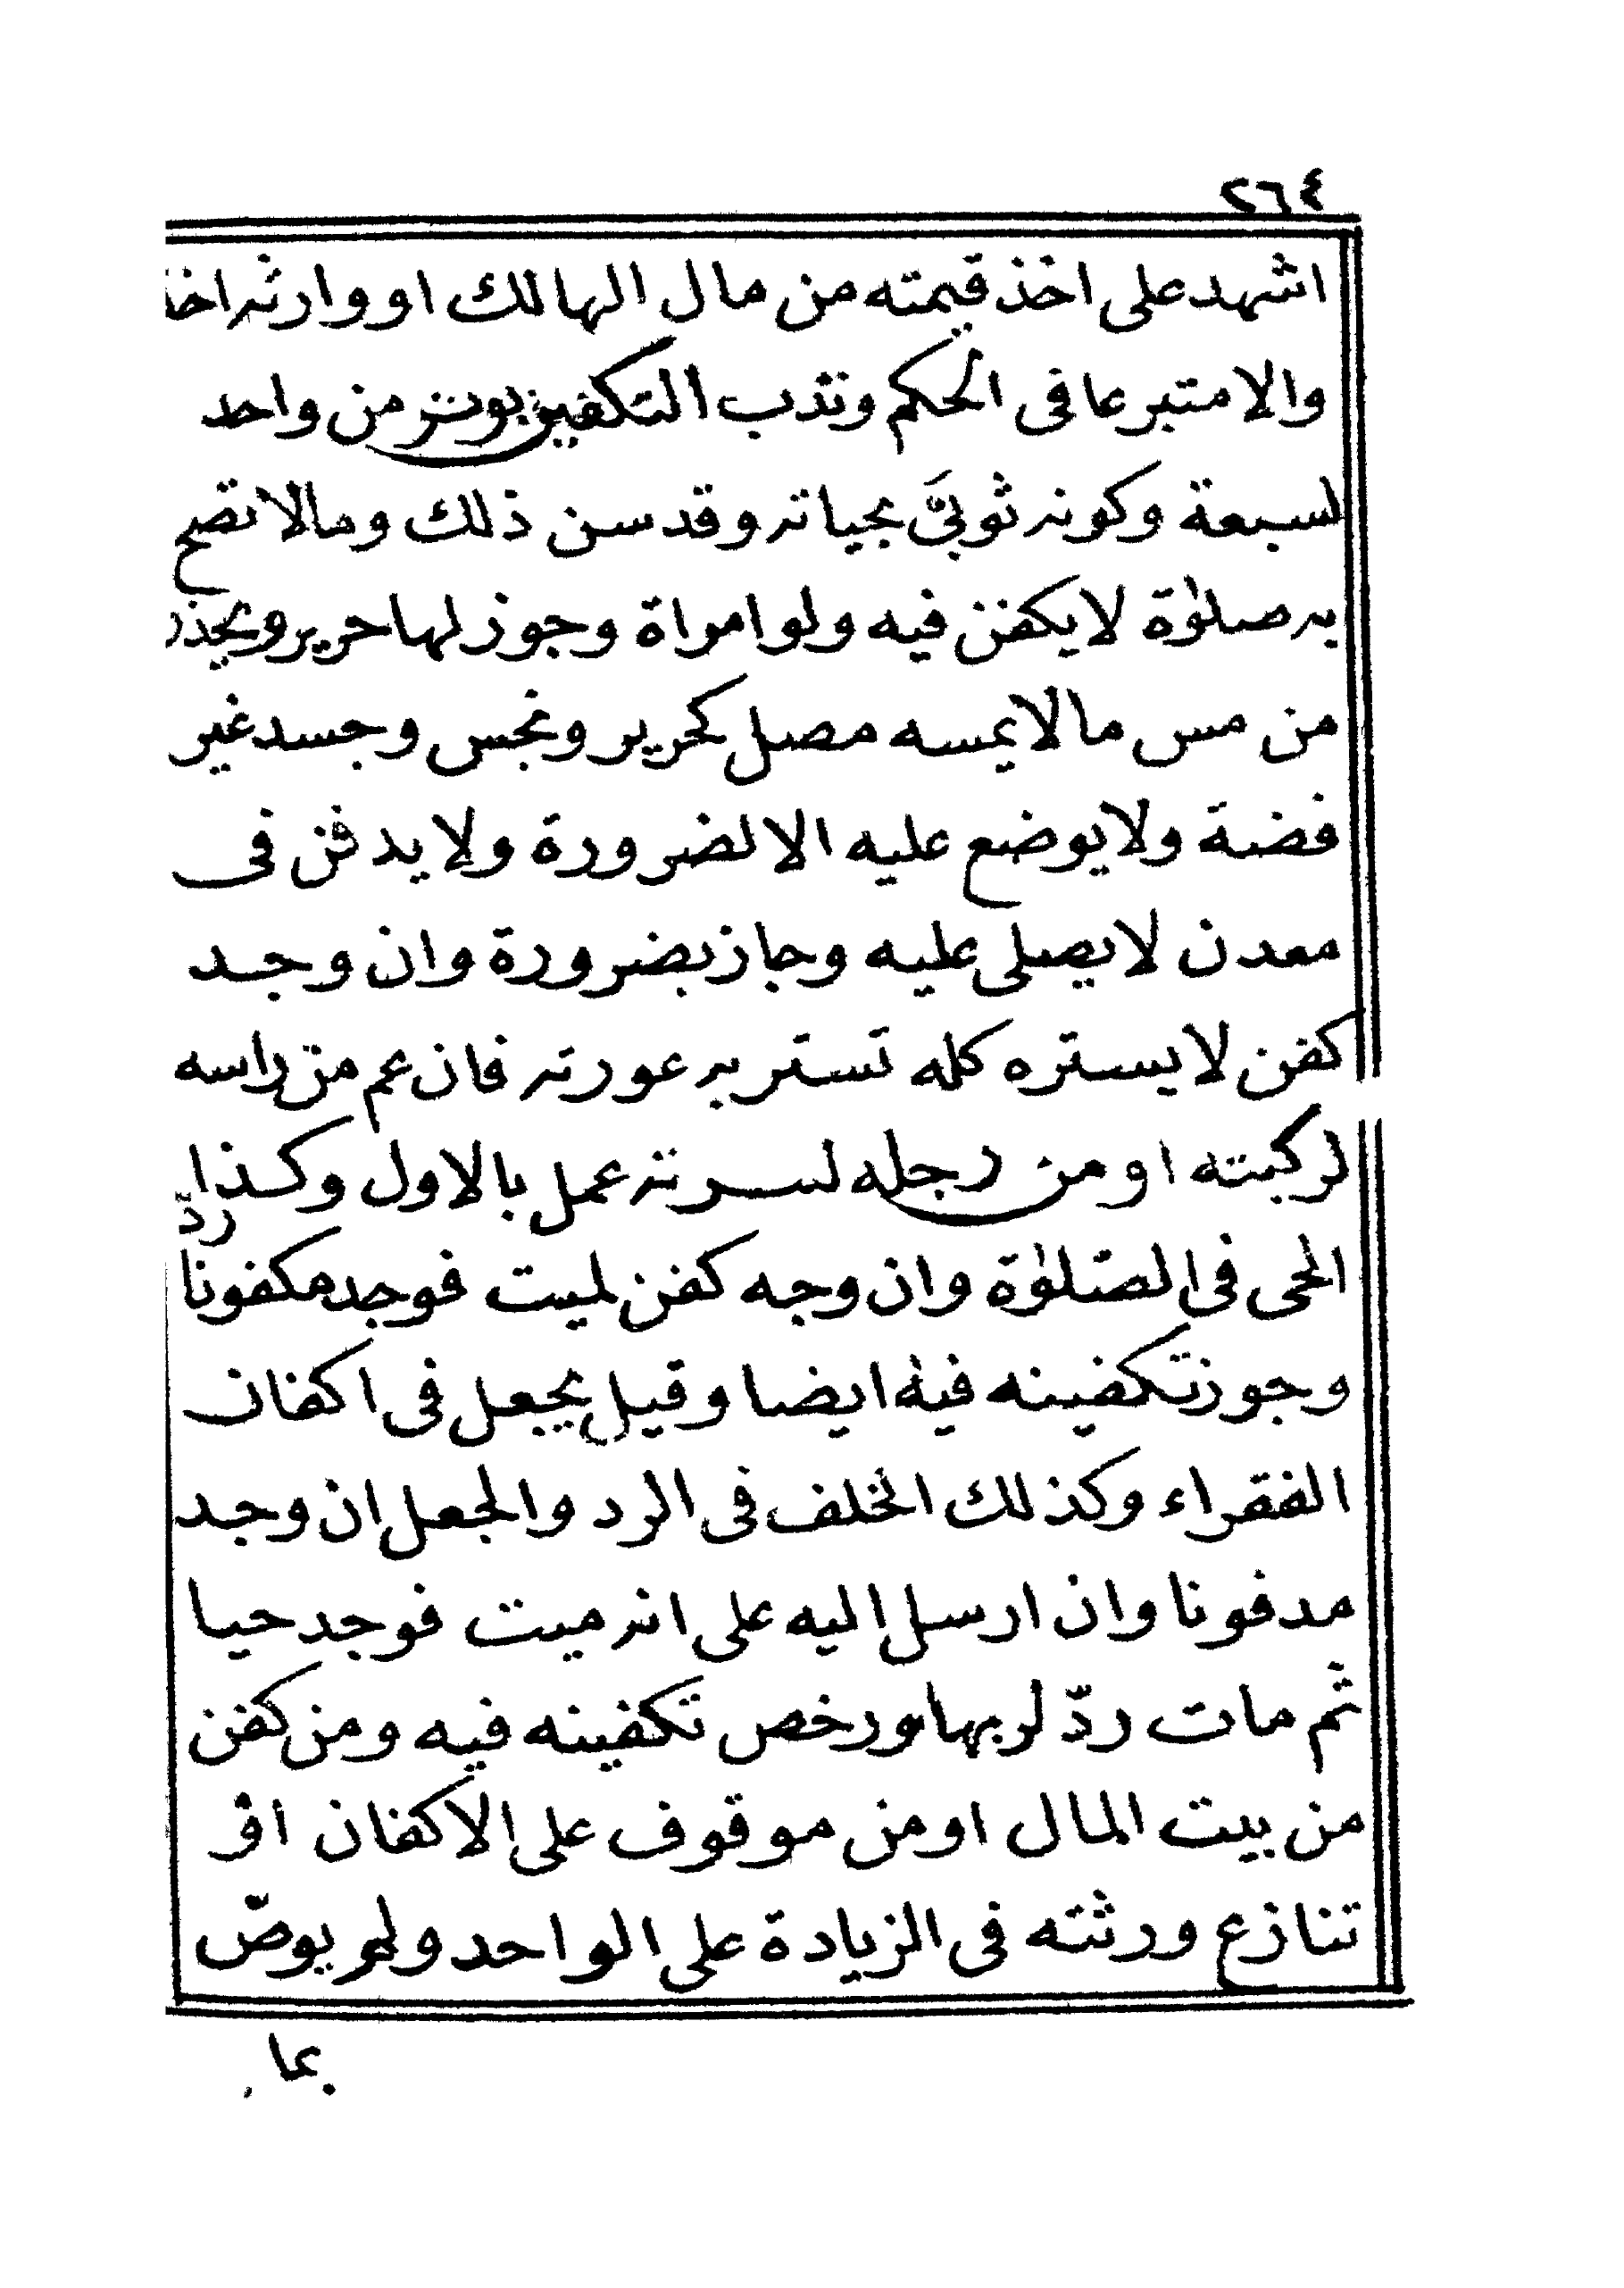 ٢٦٤
اشهد على اخذ قيمته من مال الهالك او وارثه اخذ
والا متبرعا فى الحكم وندب التكفين بوتر من واحد
لسبعة وكونه ثوبىَّ بحياته وقد سن ذلك وما لا تصح
به صلوٰة لا يكفن فيه ولو امراة وجوز لها حرير ويحذر
من مس ما لا يمسه مصل كحرير ونجس وجسد غير
فضة ولا يوضع عليه الا لضرورة ولا يدفن فى
معدن لا يصلى عليه وجاز بضرورة وان وجد
كفن لا يستره كله تستر به عورته فان عم من راسه
لركبته او من رجله لسرته عمل بالاول وكذا
الحى فى الصّلوٰة وان وجه كفن لميت فوجد مكفونا ردّ
وجوز تكفينه فيه ايضا وقيل يجعل فى اكفان
الفقراء وكذلك الخلف فى الرد والجعل ان وجد
مدفونا وان ارسل اليه على انه ميت فوجد حيا
ثم مات ردّ لربها ورخص تكفينه فيه ومن كفن
من بيت المال او من موقوف على الاكفان او
تنازع ورثته فى الزيادة على الواحد ولم يوصّ
بما